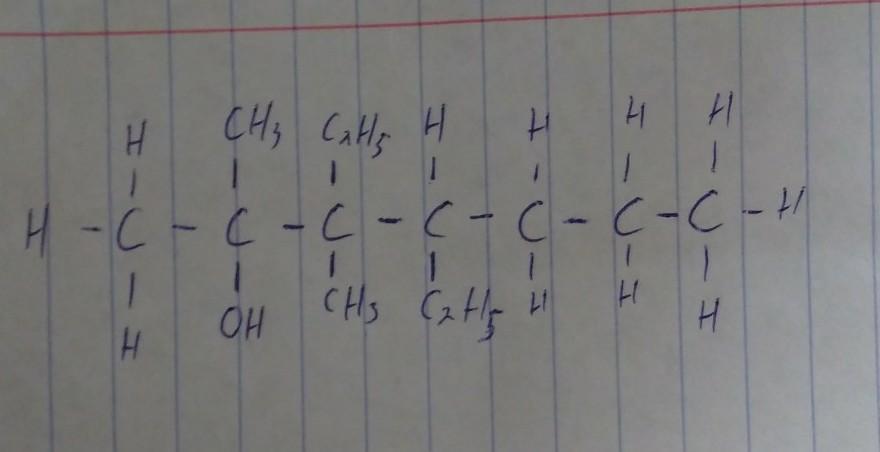 H CH3 C2H5 H H H H
H - C - C - C - C - C - C - C - H
H OH CH3 C2H5 H H H